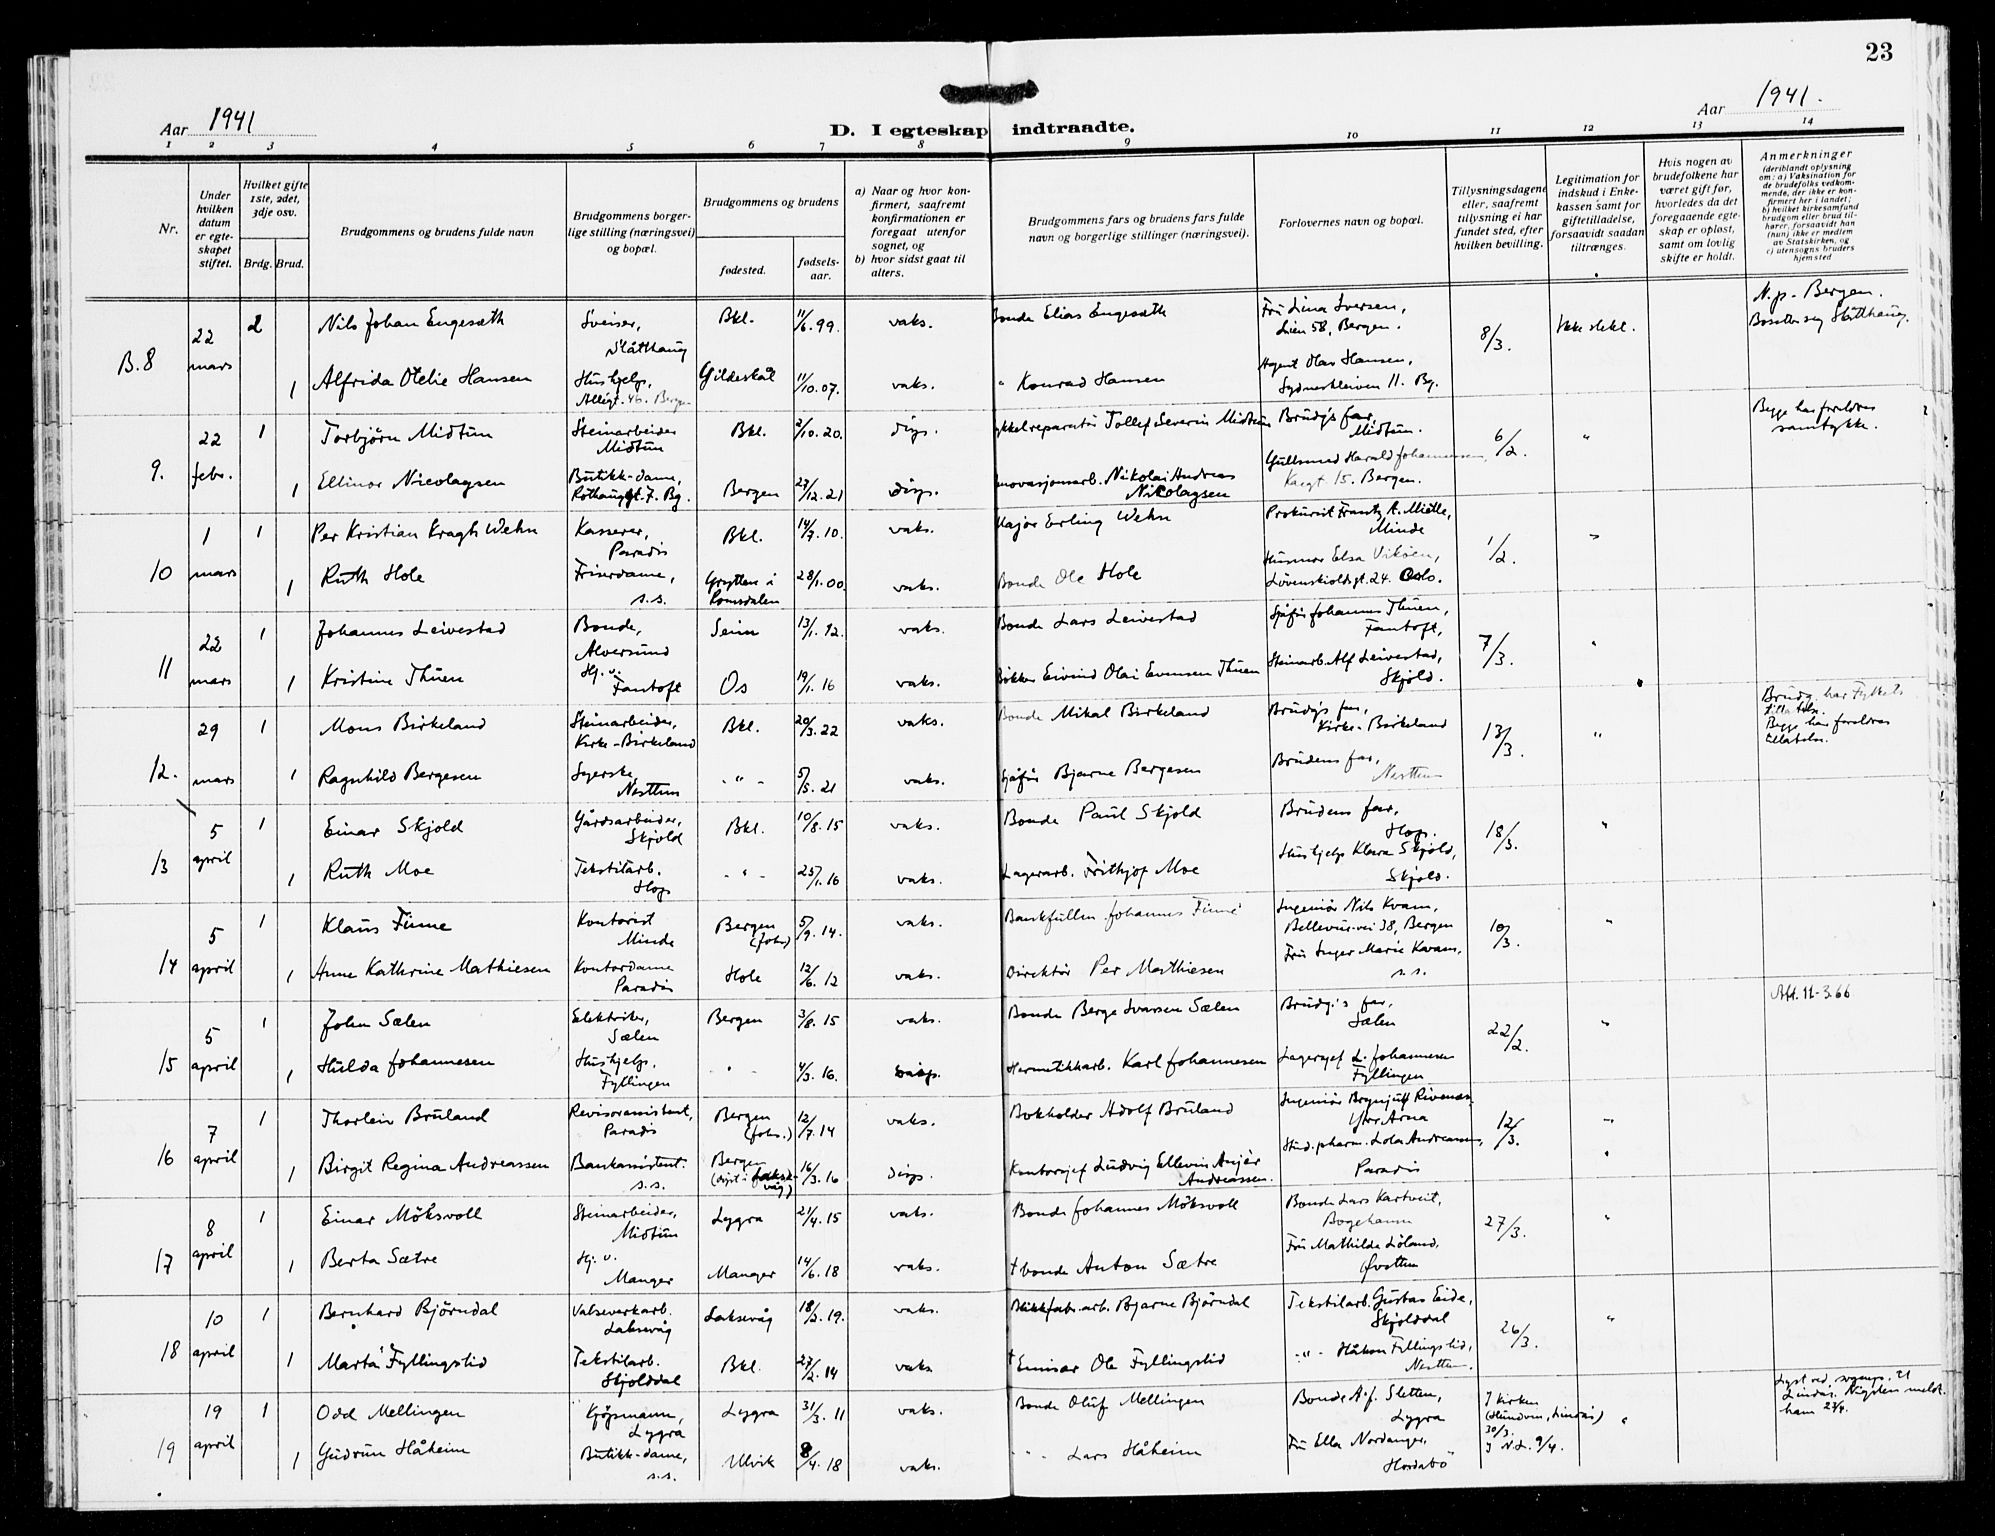 23
Aar 1941
Aar 1941.
D. I egteskap indtraadte.
1 2 3 4 5 6 7 8 9 10 11 12 13 14
Nr.
Under hvilken datum er egteskapet stiftet.
Hvilket gifte 1ste, 2det, 3dje osv.
Brdg. Brud.
Brudgommens og brudens fulde navn
Brudgommens borgerlige stilling (næringsvei) og bopæl.
Brudgommens og brudens
fødested.
fødselsaar.
a) Naar og hvor konfirmert, saafremt konfirmationen er foregaat utenfor sognet, og
b) hvor sidst gaat til alters.
Brudgommens fars og brudens fars fulde navn og borgerlige stillinger (næringsvei).
Forlovernes navn og bopæl.
Tillysningsdagene eller, saafremt tillysning ei har fundet sted, efter hvilken bevilling.
Legitimation for indskud i Enkekassen samt for giftetilladelse, forsaavidt saadan tiltrænges.
Hvis nogen av brudefolkene har været gift før, hvorledes da det foregaaende egteskap er opløst, samt om lovlig skifte er holdt.
Anmerkninger (deriblandt oplysning om: a) Vaksination for de brudefolks vedkommende, der ikke er konfirmert her i landet; b) hvilket kirkesamfund brudgom eller brud tilhører, forsaavidt han (hun) ikke er medlem av Statskirken, og c) utensogns bruders hjemsted
B.8 22 mars 2 Nils Johan Engesæth Sveiser, Slåtthaug Bkl. 11/6.99. vaks. Bonde Elias Engesæth Fru Lina Iversen, Lien 58, Bergen. 8/3. Ikke slekt. N.p. Bergen. Bosetter seg Slåtthaug.
1 Alfrida Otelie Hansen Hushjelp, Allégt. 46. Bergen Gildeskål 11/10.07. vaks. " Konrad Hansen Agent Olav Hansen, Sydneskleiven 11. Bg.
9. 22 febr. 1 Torbjörn Midtun Steinarbeider Midtun Bkl. 2/10.20. disp. Tollef Severin Midtun Brudg's far, Midtun. 6/2. " Begge har foreldres samtykke.
1 Ellinor Nicolaysen Butikk-dame, Rothaugt. 7. Bg. Bergen 27/12.21 disp. Nikolai Andreas Nikolaysen Gullsmed Harald Johannessen, 15. Bergen.
10 1 mars 1 Per Kristian Kragh Wehn Kasserer, Paradis Bkl. 14/7.10. vaks. Major Erling Wehn Prokurist Frantz R. Mielle, Minde 1/2. "
1 Ruth Hole Frisørdame, s.s. Grytten i Romsdalen 28/1.00. vaks. Bonde Ole Hole Husmor Elsa Viköen, Lövenskioldsgt. 24. Oslo.
11 22 mars 1 Johannes Leivestad Bonde, Alversund Seim 13/1.12. vaks. Bonde Lars Leivestad Sjåfør Johannes Thuen, Fantoft, 7/3. "
1 Kristine Thuen Hj. v. Fantoft Os 19/1.16 vaks. Eivind Olai Evensen Thuen Steinarb. Alf Leivestad, Skjold.
12. 29 mars 1 Mons Birkeland Steinarbeider, Kirke-Birkeland Bkl. 20/3.22 vaks. Bonde Mikal Birkeland Brudg's far, Kirke-Birkeland 13/3. " Brudg. har Fylkets tillatelse. Begge har foreldres tillatelse.
1 Ragnhild Bergesen Syerske, Nesttun - " - 5/5.21 vaks. Sjåfør Bjarne Bergesen Brudens far, Nesttun
13 5 april 1 Einar Skjold Gårdsarbeider, Skjold Bkl. 10/8.15 vaks. Bonde Paul Skjold Brudens far, Hop. 18/3. "
1 Ruth Moe Tekstilarb. Hop - " - 25/1.16 vaks. Lagerarb. Frithjof Moe Hushjelp Klara Skjold, Skjold.
14 5 april 1 Klaus Finne Kontorist Minde Bergen (Joh.) 5/9.14. vaks. Bankfullm. Johannes Finne Ingeniör Nils Kvam, Bellevue-vei 38, Bergen 10/3. "
1 Anne Kathrine Mathiesen Kontordame Paradis Hole 12/6.12 vaks. Direktör Per Mathiesen Fru Inger Marie Kvam, s.s.
15 5 april 1 John Sælen Elektriker, Sælen Bergen 3/8.15 vaks. Bonde Berge Ivarsen Sælen Brudg.'s far, Sælen 22/2. " Att. 11-3.66
1 Hulda Johannesen Hushjelp, Fyllingen - " - 4/3.16. Hermetikkarb. Karl Johannesen Lagersjef L. Johannesen Fyllingen
16 7 april 1 Thorlein Bruland Revisorassistent, Paradis Bergen (Joh.) 12/7.14 vaks. Bokholder Adolf Bruland Ingeniör Brynjulf Rivenes Ytre Arna 12/3. "
1 Birgit Regina Andreassen Bankassistent. s.s. Bergen (döpt i Laksevåg) 16/3.16 disp. Kontorsjef Ludvig Ellevin Anjër Andreassen. Stud. pharm. Lola Andreassen, Paradis
17 8 april 1 Einar Möksvoll Steinarbeider, Midtun Lygra 21/4.15 vaks. Bonde Johannes Möksvoll Bonde Lars Kartveit, Bogehamn 27/3. "
1 Berta Sætre Hj. v. Manger Manger 14/6.18 vaks. † bonde Anton Sætre Fru Mathilde Löland,
18 10 april 1 Bernhard Björndal Valseverkarb. Laksevåg Laksevåg 18/2.19. vaks. Blikkfabr. arb. Bjarne Björndal Tekstilarb. Gustav Eide, Skjolddal 26/3. "
1 Marta Fyllingslid Tekstilarb. Skjolddal Bkl. 27/2.14 vaks † Emisær Ole Fyllingslid - " - Håkon Fyllingslid, Nesttun.
19 19 april 1 Odd Mellingen Kjöpmann, Lygra Lygra 31/3.11 vaks. Bonde Oluf Mellingen Bonde A.J. Sletten, Lygra I kirken (Hundven, Lindås) 30/3. I N.L. 9/4. " Lyst ved sognepr. til Lindås. Vigslen meldt ham 23/4.
1 Gudrun Håheim Butikk-dame, s.s. Ulvik 8/4.18 vaks. " Lars Håheim Fru Ella Nordanger, Hordabø